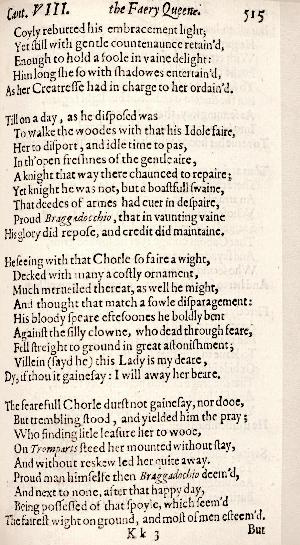 Cant. VIII. the Faery Queene. 515
Coyly rebutted his embracement light;
Yet still with gentle countenaunce retain'd,
Enough to hold a foole in vaine delight:
Him long she so with shadowes entertain'd,
As her Creatresse had in charge to her ordain'd.
Till on a day, as he disposed was
To walke the woodes with that his Idole faire,
Her to disport, and idle time to pas,
In th'open freshnes of the gentle aire,
A knight that way there chaunced to repaire;
Yet knight he was not, but a boastfull swaine,
That deedes of armes had euer in despaire,
Proud Braggadocchio, that in vaunting vaine
His glory did repose, and credit did maintaine.
He seeing with that Chorle so faire a wight,
Decked with many a costly ornament,
Much merueiled thereat, as well he might,
And thought that match a fowle disparagement:
His bloody speare eftesoones he boldly bent
Against the silly clowne, who dead through feare,
Fell streight to ground in great astonishment;
Villein (sayd he) this Lady is my deare,
Dy, if thou it gainesay: I will away her beare.
The fearefull Chorle durst not gainesay, nor dooe,
But trembling stood, and yielded him the pray;
Who finding litle leasure her to wooe,
On Tromparts steed her mounted without stay,
And without reskew led her quite away.
Proud man himselfe then Braggadochio deem'd,
And next to none, after that happy day,
Being possessed of that spoyle, which seem'd
The fairest wight on ground, and most of men esteem'd.
K k 3 But